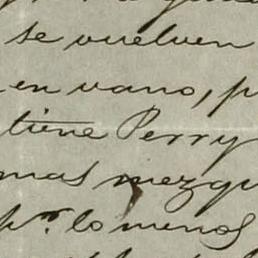 se vuelven
en vano, p
tiene Perry
mas mezqu
pr. lo menos